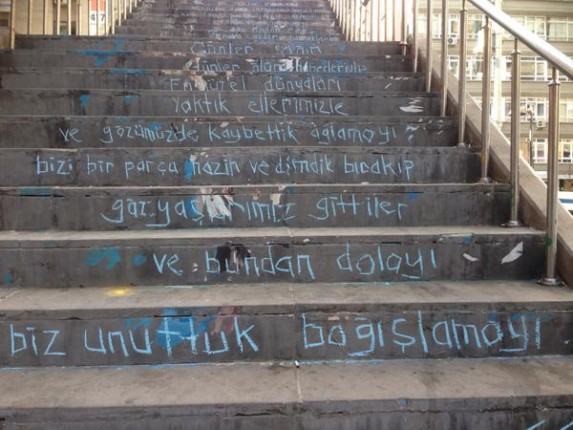 Günler ağır
Günler ölüm haberleriyle
En güzel dünyaları
Yaktık ellerimizle
ve gözümüzde kaybettik ağlamayı
bizi bir parça hazin ve dimdik bırakıp
gözyaşlarımız gittiler
ve bundan dolayı
biz unuttuk bağışlamayı